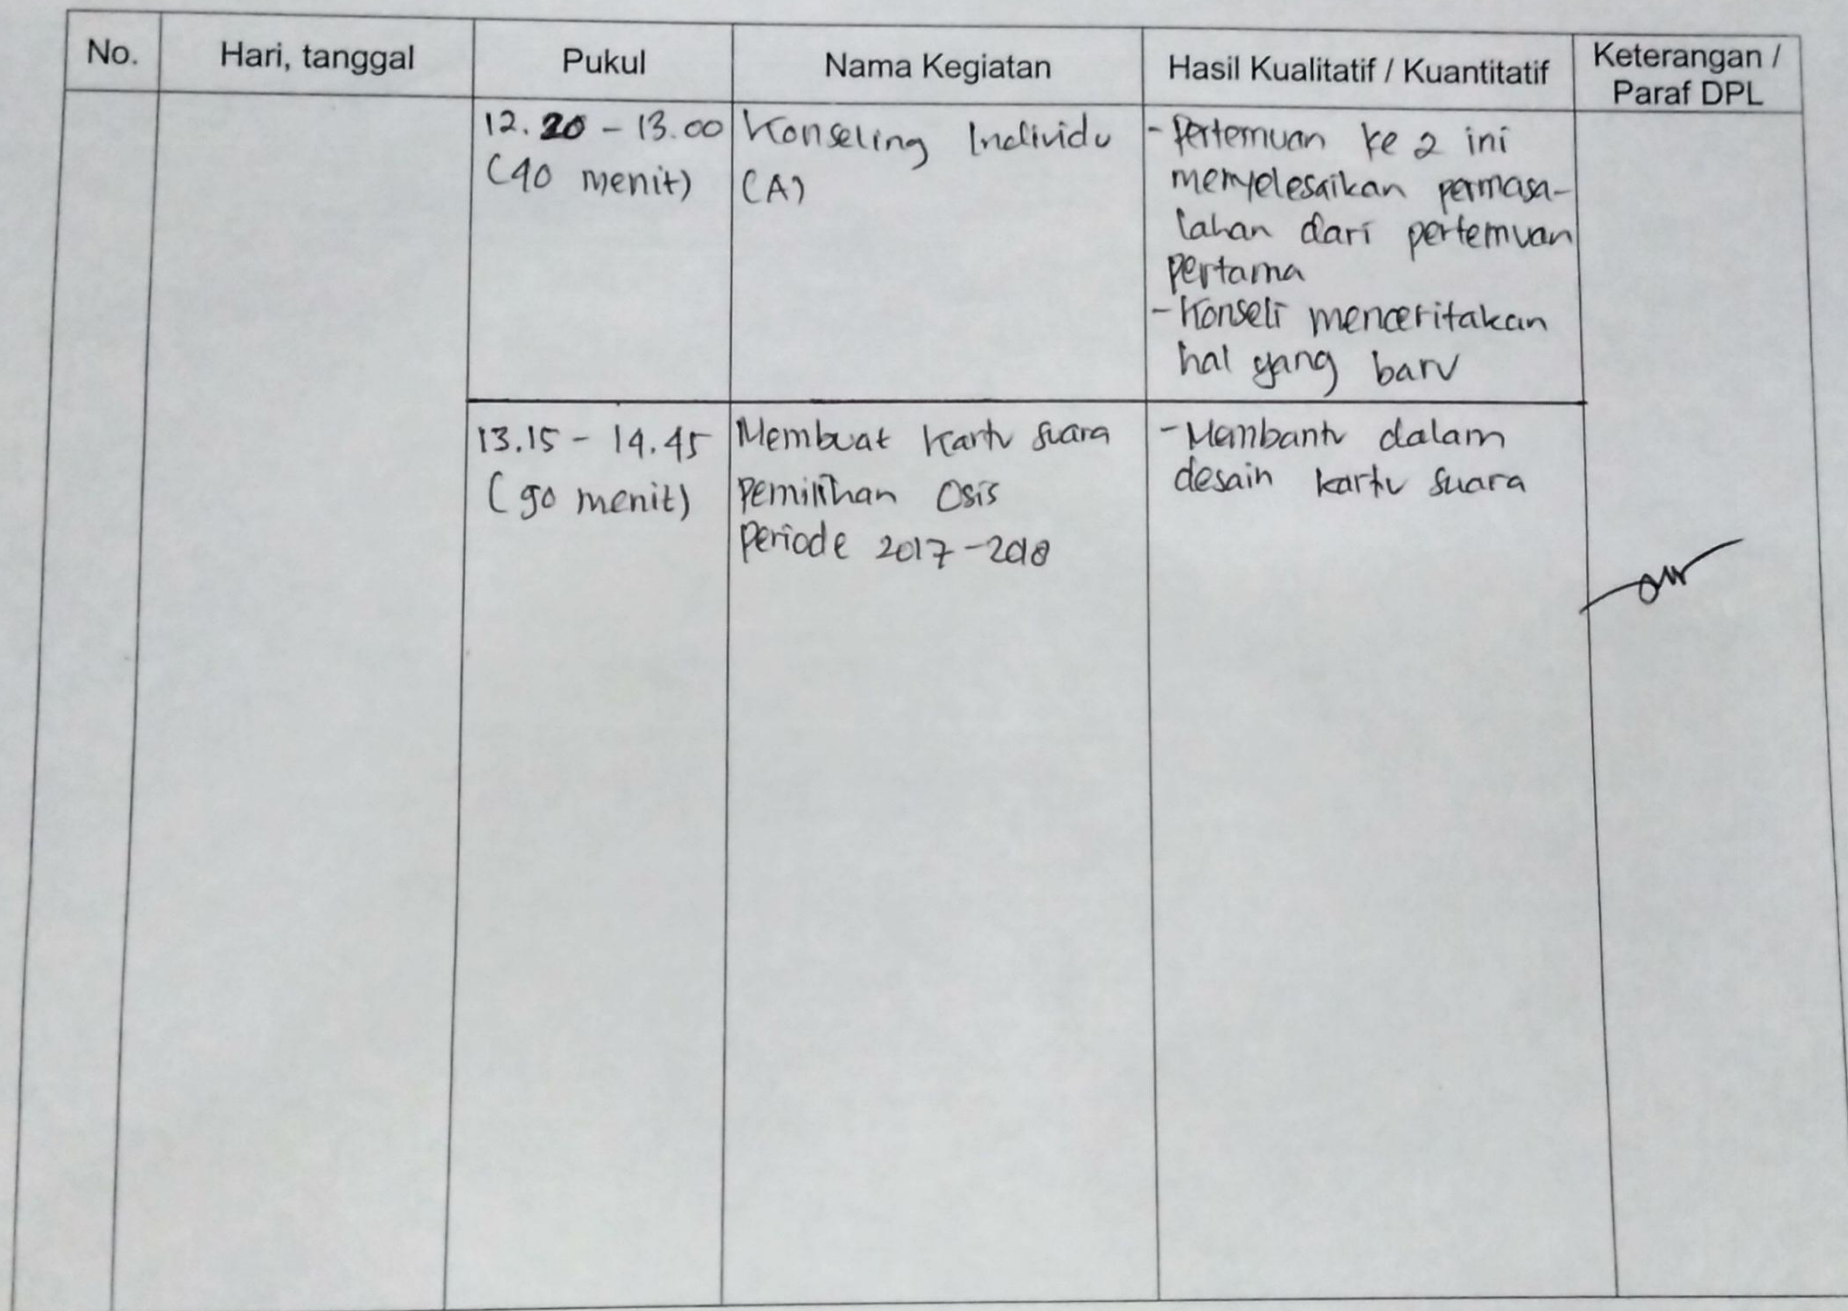 No. Hari, tanggal Pukul Nama Kegiatan Hasil Kualitatif / Kuantitatif Keterangan /
Paraf DPL
12.20 - 13.00
(40 menit)
Konseling Individu
(A)
- Pertemuan ke 2 ini
menyelesaikan permasa-
lahan dari pertemuan
pertama
- Konseli menceritakan
hal yang baru
13.15 - 14.45
(90 menit)
Membuat Kartu suara
pemilihan Osis
Periode 2017-2018
- Membantu dalam
desain kartu suara